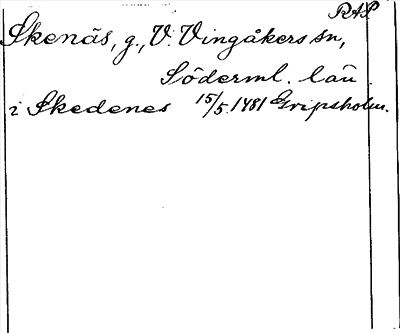 RAP
Skenäs, g., V. Vingåkers sn,
Söderml. län
i Skedenes 15/5 1481 Gripsholm.